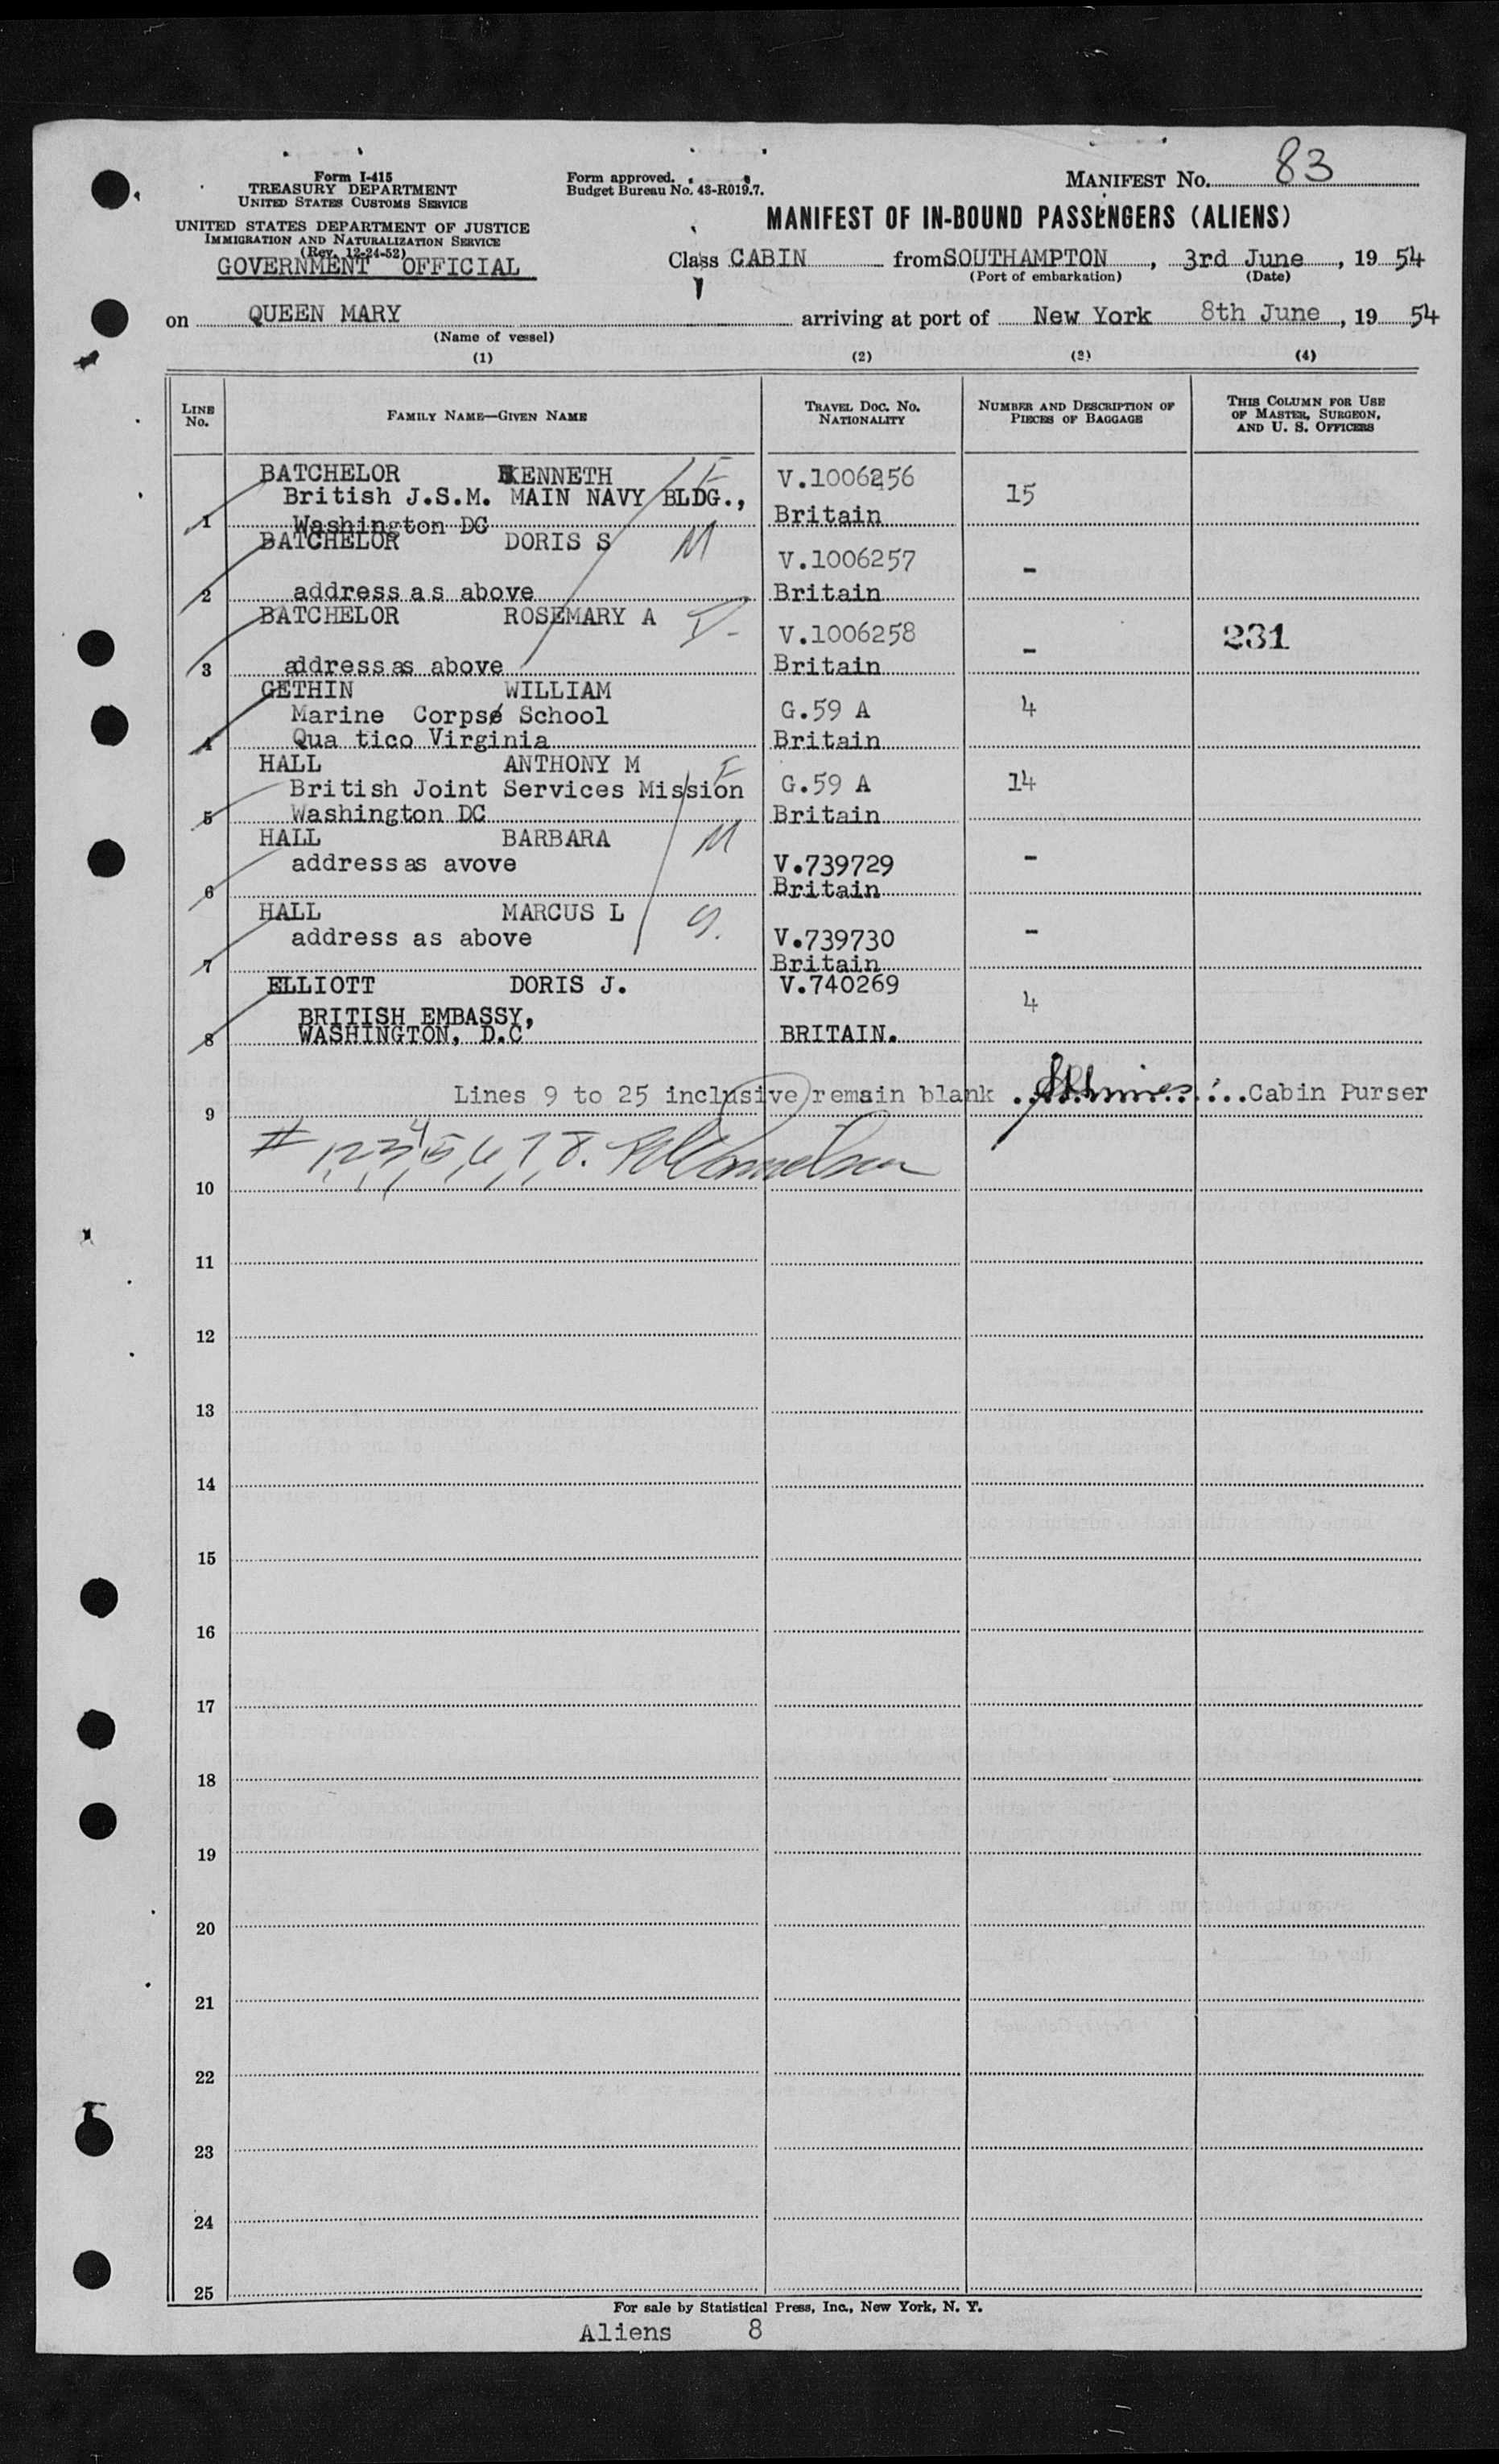 Form I-415
TREASURY DEPARTMENT
UNITED STATES CUSTOMS SERVICE
UNITED STATES DEPARTMENT OF JUSTICE
IMMIGRATION AND NATURALIZATION SERVICE
(Rev. 12-24-52)
GOVERNMENT OFFICIAL
Form approved.
Budget Bureau No. 43-R019.7.
MANIFEST NO. 83
MANIFEST OF IN-BOUND PASSENGERS (ALIENS)
Class CABIN from SOUTHAMPTON, 3rd June, 19 54
(Port of embarkation) (Date)
on QUEEN MARY arriving at port of New York 8th June, 19 54
(Name of vessel)
(1) (2) (3) (4)
LINE NO.
FAMILY NAME—GIVEN NAME
TRAVEL DOC. NO.
NATIONALITY
NUMBER AND DESCRIPTION OF
PIECES OF BAGGAGE
THIS COLUMN FOR USE
OF MASTER, SURGEON,
AND U. S. OFFICERS
BATCHELOR KENNETH F V.1006256 15
British J.S.M. MAIN NAVY BLDG.,
1 Washington DC Britain
BATCHELOR DORIS S M V.1006257 -
2 address as above Britain
BATCHELOR ROSEMARY A D- V.1006258 - 231
3 address as above Britain
GETHIN WILLIAM
Marine Corpse School G.59 A 4
4 Qua tico Virginia Britain
HALL ANTHONY M F
British Joint Services Mission G.59 A 14
5 Washington DC Britain
HALL BARBARA M
address as avove V.739729 -
6 Britain
HALL MARCUS L S.
address as above V.739730 -
7 Britain
ELLIOTT DORIS J. V.740269 4
BRITISH EMBASSY,
8 WASHINGTON, D.C BRITAIN.
Lines 9 to 25 inclusive remain blank Cabin Purser
9
# 1, 2, 3, 4, 5, 6, 7, 8.
10
11
12
13
14
15
16
17
18
19
20
21
22
23
24
25
For sale by Statistical Press, Inc., New York, N. Y.
Aliens 8